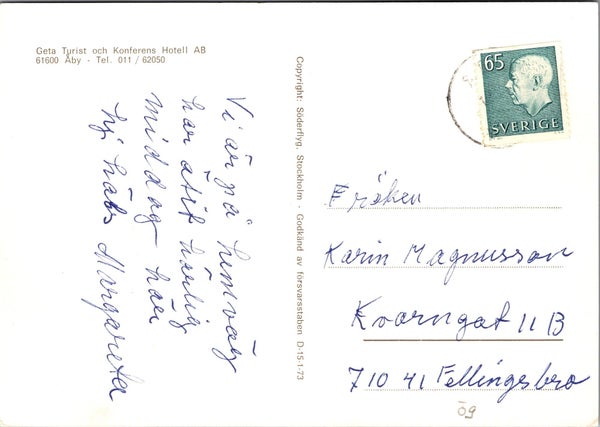 Geta Turist och Konferens Hotell AB
61600 Åby - Tel. 011/62050
Vi är på hemväg
har ätit härlig
middag här
hj. häls Margareta
Copyright: Söderflyg, Stockholm - Godkänd av försvarsstaben D-15-1-73
65
SVERIGE
Fröken
Karin Magnusson
Kvarngat 11 B
710 41 Fellingsbro
ög